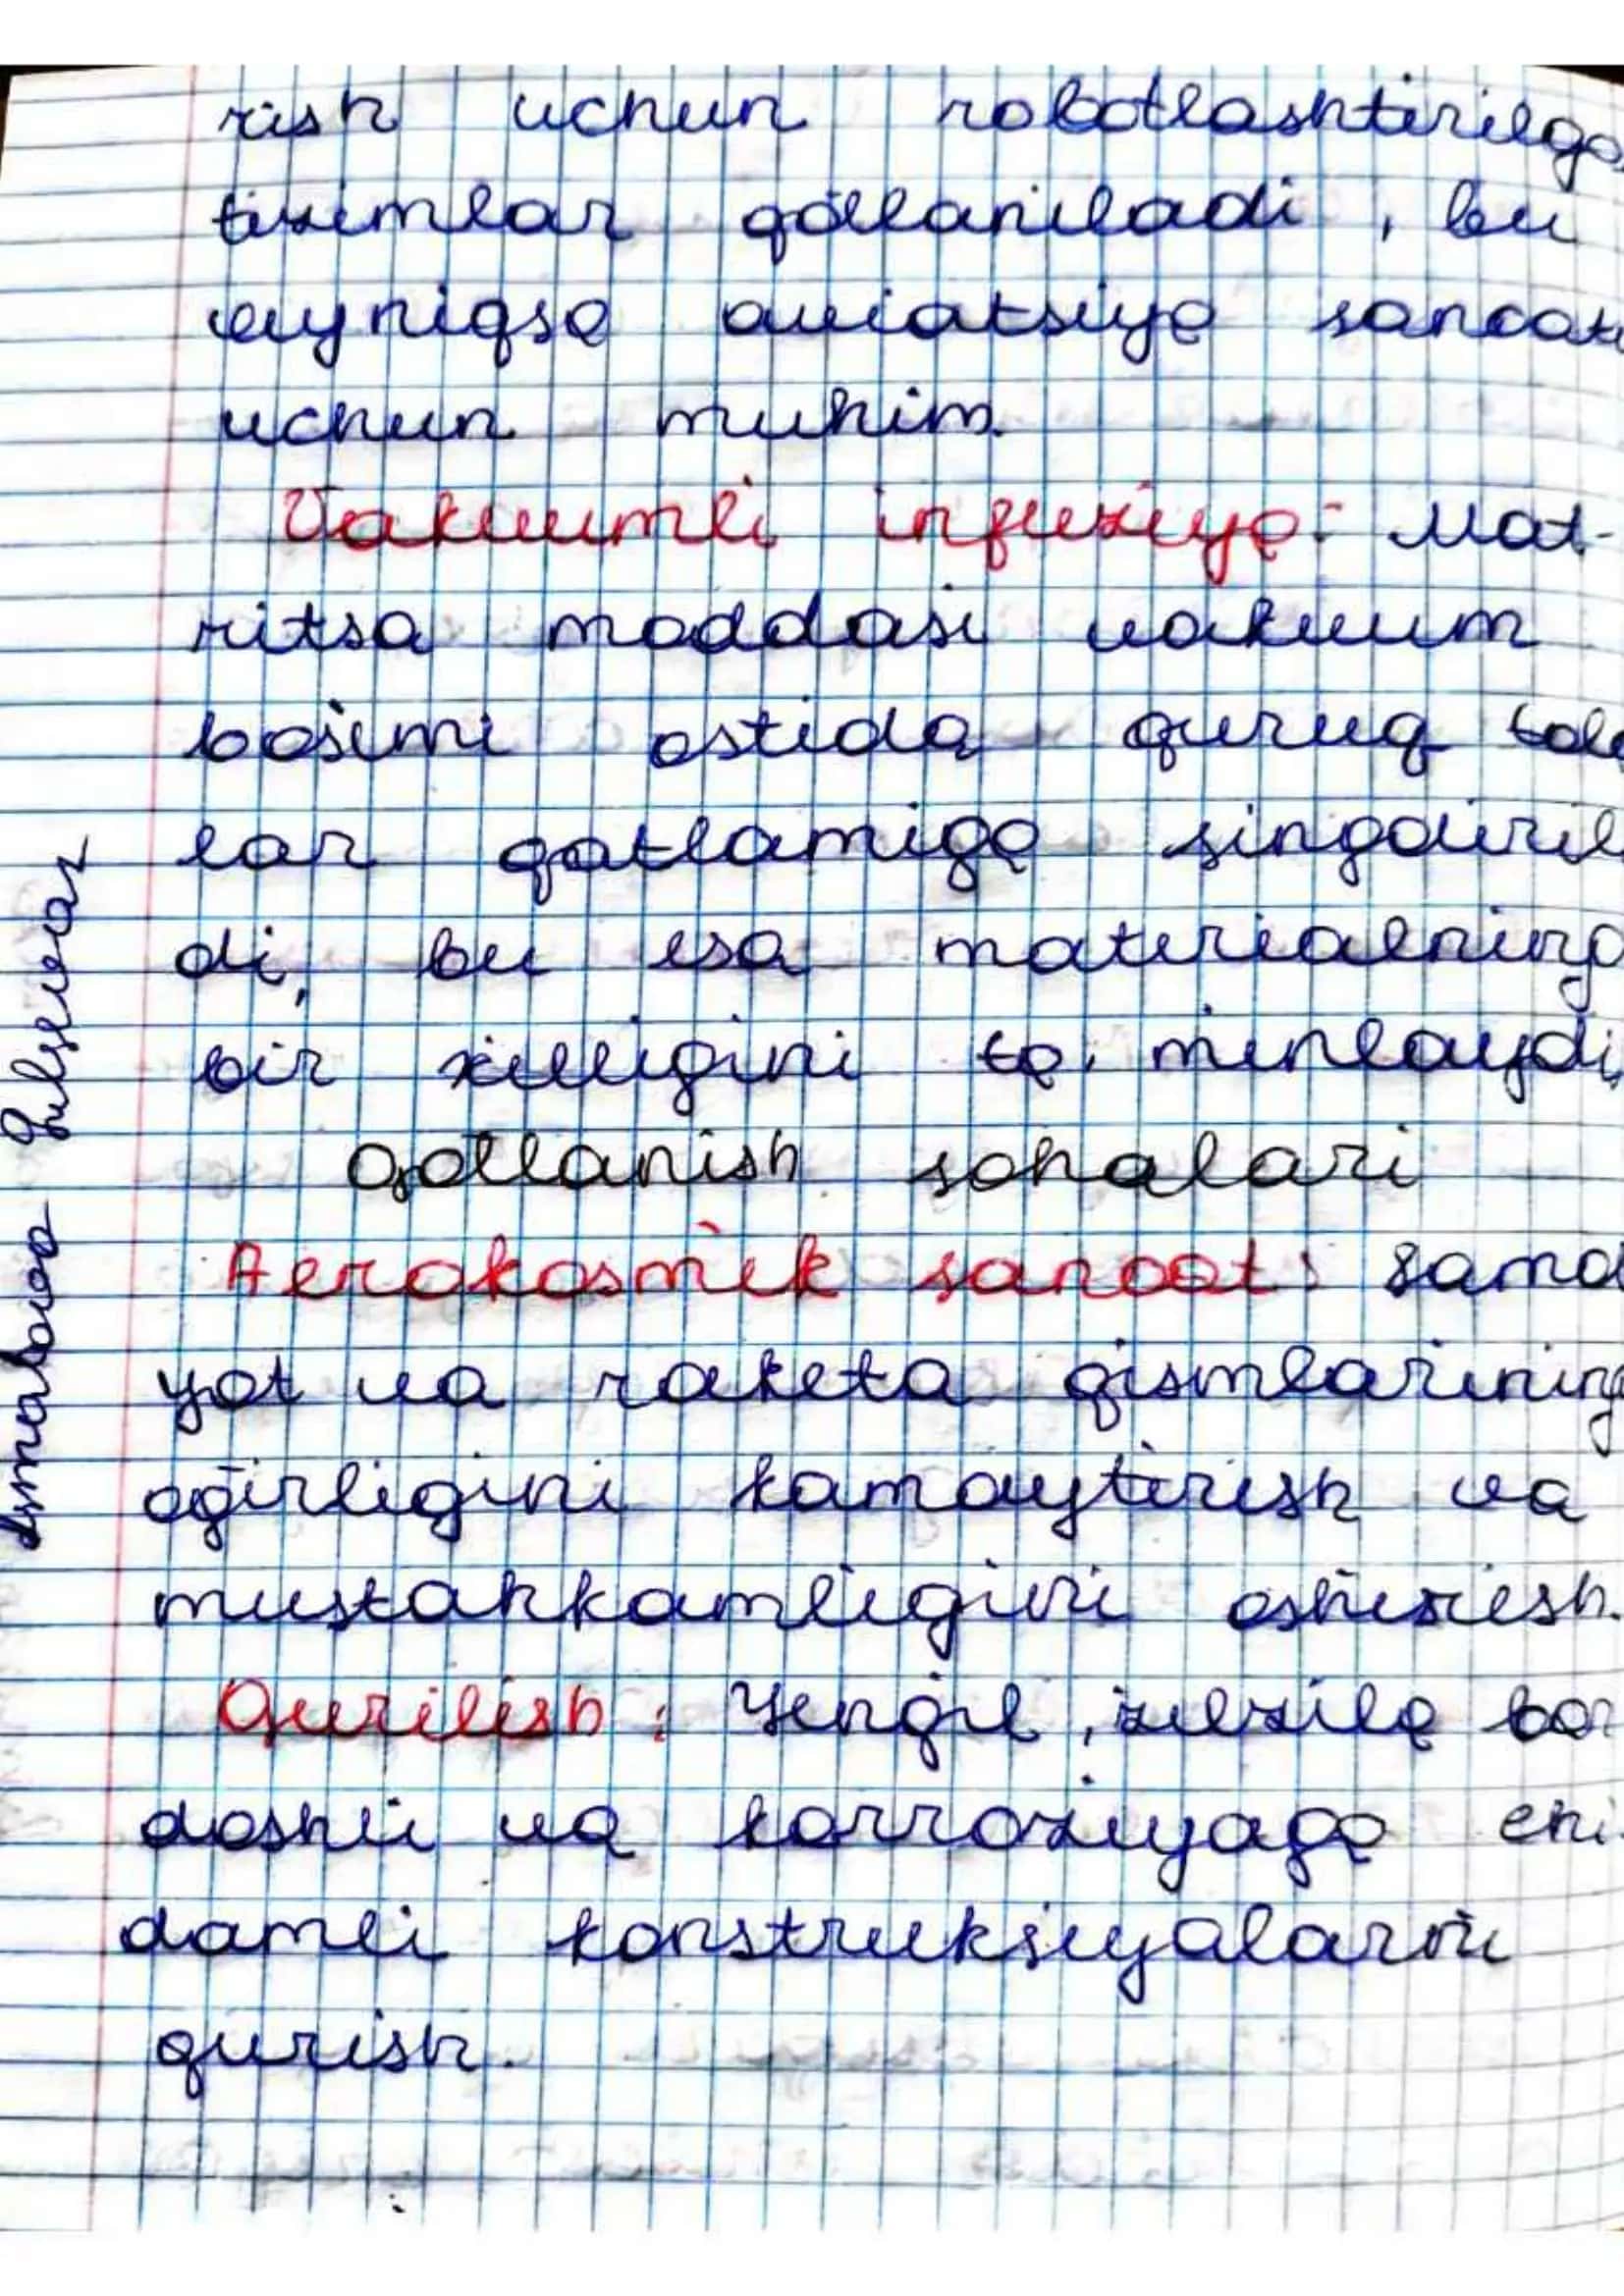 rish uchun robotlashtirilga
tizimlar qo'llaniladi, bu
ayniqsa aviatsiya sanoati
uchun muhim.
Vakuumli infuziya: Mat-
ritsa moddasi vakuum
bosimi ostida quruq tola
lar qatlamiga singdiril
di, bu esa materialning
bir xilligini ta'minlaydi,
Qo'llanish sohalari
Aerokosmik sanoat: Samol
yot va raketa qismlarining
og'irligini kamaytirish va
mustahkamligini oshirish.
Qurilish: Yengil, zilzila bar
doshli va korroziyaga chi
damli konstruksiyalarni
qurish.
Ismatova Gulsevar